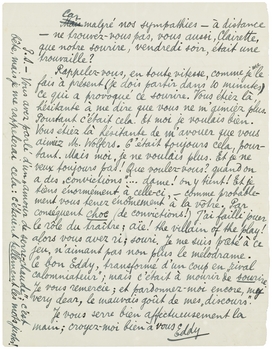 Car
malgré nos sympathies – à distance
– ne trouvez-vous pas, vous aussi, Clairette,
que notre sourire, vendredi soir, était une
trouvaille?
Rappelez-vous, en toute vitesse, comme je le
fais à présent (je dois partir dans 10 minutes)
ce qui a provoqué ce sourire. Vous étiez là
hésitante à me dire que vous ne m'aimiez plus.
Pourtant c'était cela. Et moi je voulais bien.
Vous étiez là hésitante de m'avouer que vous
aimiez M. Wolfers. C'était toujours cela, pour-
tant. Mais moi, je ne voulais plus. Et je ne
veux toujours pas! Que voulez-vous? quand on
a des "Convictions"... dame! on y tient! Et je
tiens énormément à celle-ci, – comme probable-
ment vous tenez énormément à la vôtre. Par
conséquent choc (de convictions!) J'ai failli jouer
le rôle du traître; aïe! the villain of the play!
alors vous avez ri; souri. Je me suis prêté à ce
jeu, n'aimant pas non plus le mélodrame.
Le bon Eddy, transformé d'un coup en rival
calomniateur; mais c'était à mourir de sourire,
Je vous remercie; et pardonnez-moi encore, my
very dear, le mauvais goût de mes discours.
Je vous serre bien affectueusement la
main; croyez-moi bien à vous
Eddy
P.S. – Vous avez parlé d'un amour de serre-chaude; c'est
bête, mais je me rappellerai cela: c'étaient tellement les mots justes!